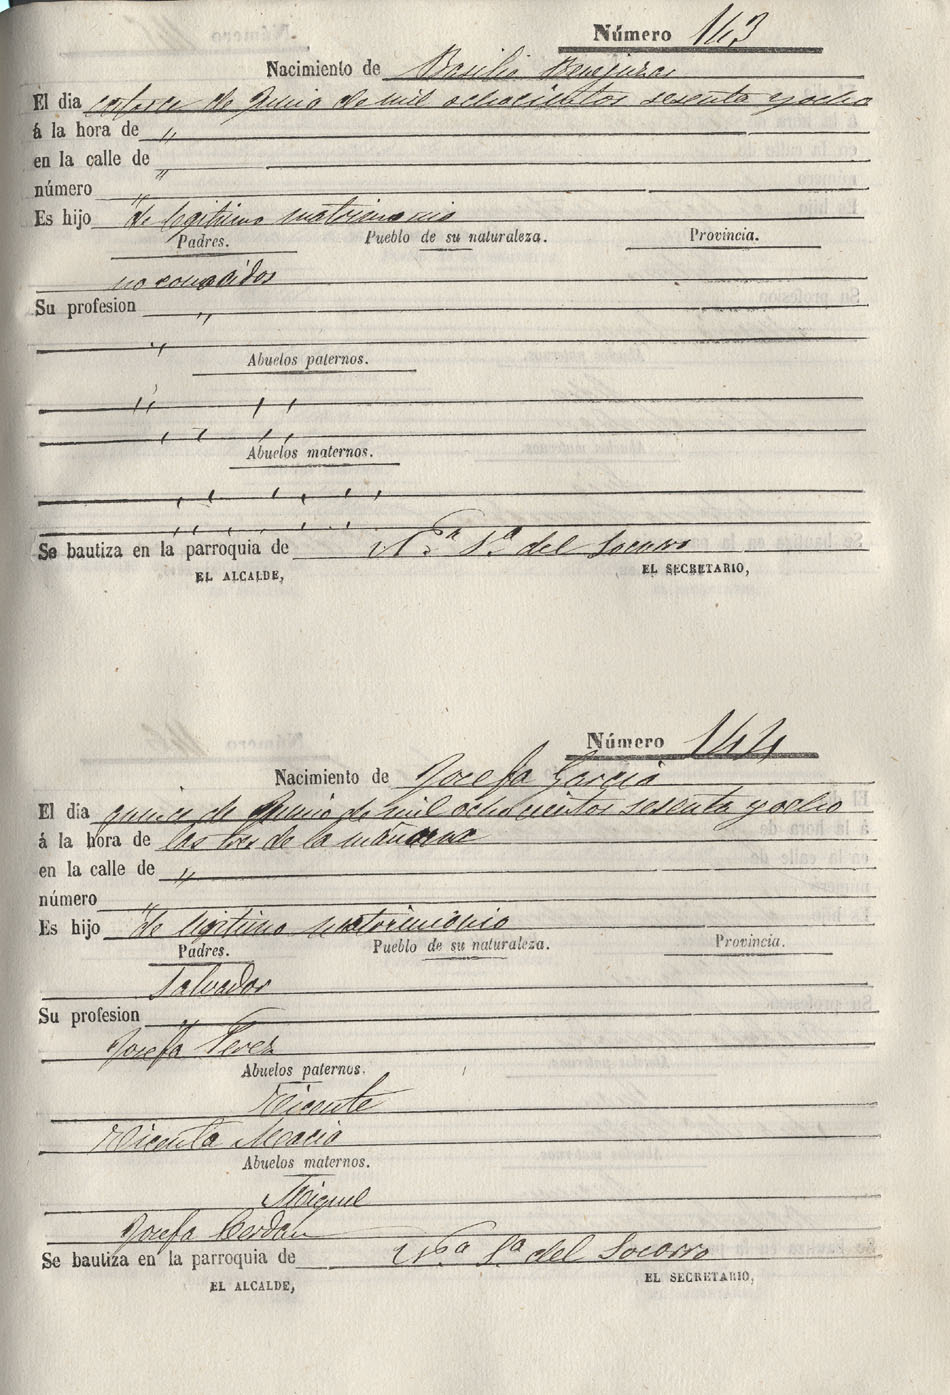 Número 143
Nacimiento de Basilio
El dia catorce de Junio de mil ochocientos sesenta y ocho
á la hora de "
en la calle de "
número "
Es hijo de legitimo matrimonio
Padres. Pueblo de su naturaleza. Provincia.
no conocidos
Su profesion "
"
Abuelos paternos.
Abuelos maternos.
Se bautiza en la parroquia de Nª Sª del Socorro
EL ALCALDE, EL SECRETARIO,
Número 144
Nacimiento de Josefa Garcia
El dia quince de Junio de mil ochocientos sesenta y ocho
á la hora de las tres de la mañana
en la calle de "
número "
Es hijo de legitimo matrimonio
Padres. Pueblo de su naturaleza. Provincia.
Salvador
Su profesion "
Josefa Perez
Abuelos paternos.
Vicente
Vicenta Macia
Abuelos maternos.
Miguel
Josefa Cerdan
Se bautiza en la parroquia de Nª Sª del Socorro
EL ALCALDE, EL SECRETARIO,